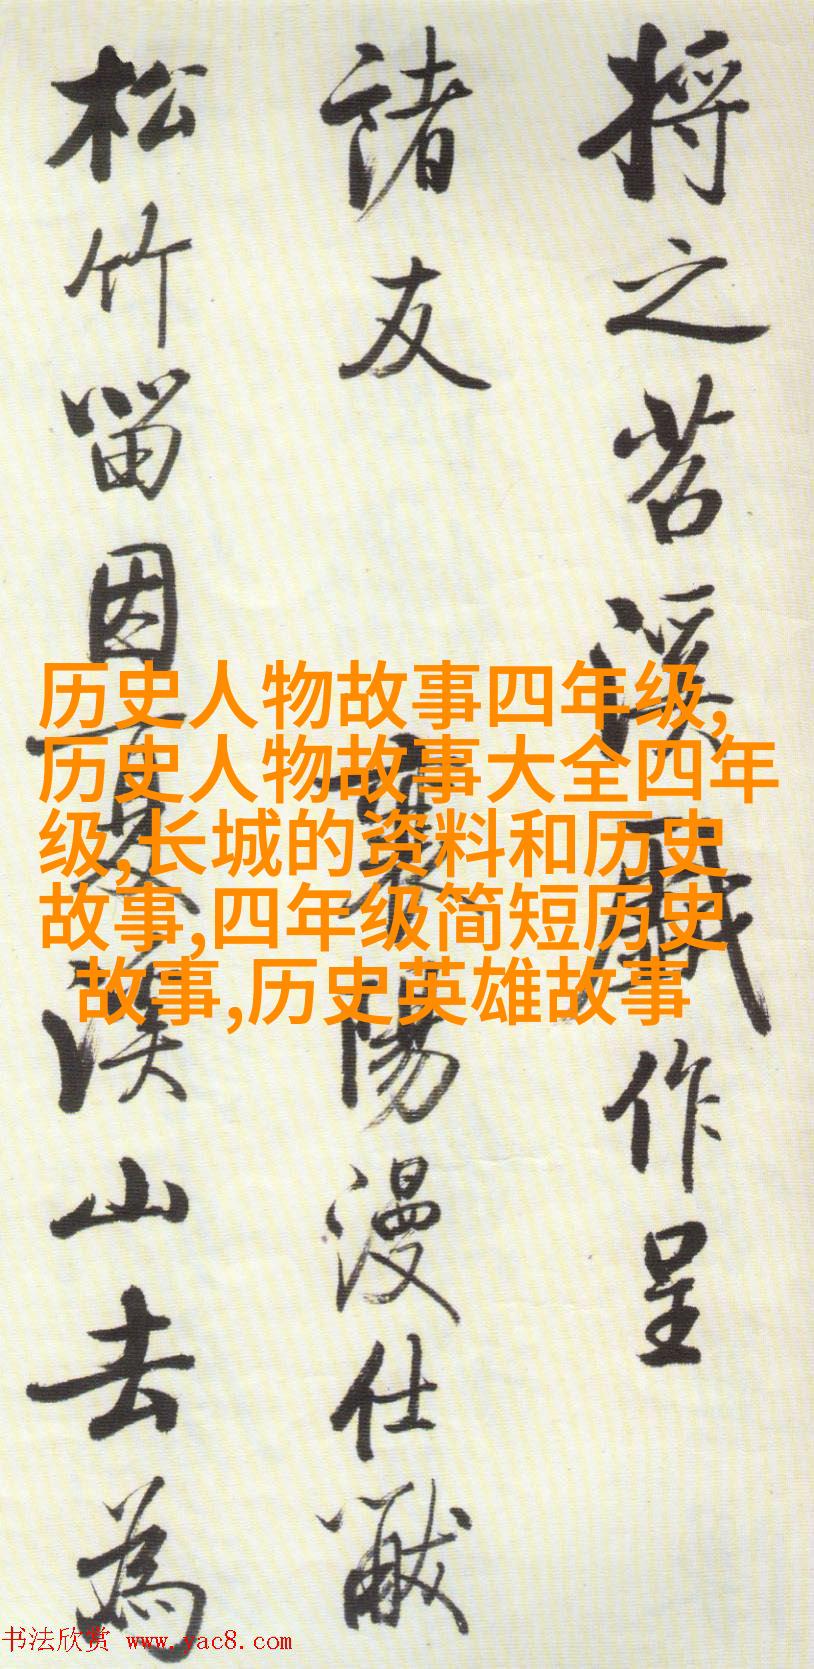 将之苕溪戲作呈
諸友
襄陽漫仕黻
松竹留因夏溪山去為
历史人物故事四年级,
历史人物故事大全四年
级,长城的资料和历史
故事,四年级简短历史
故事,历史英雄故事
书法欣赏 www.yac8.com